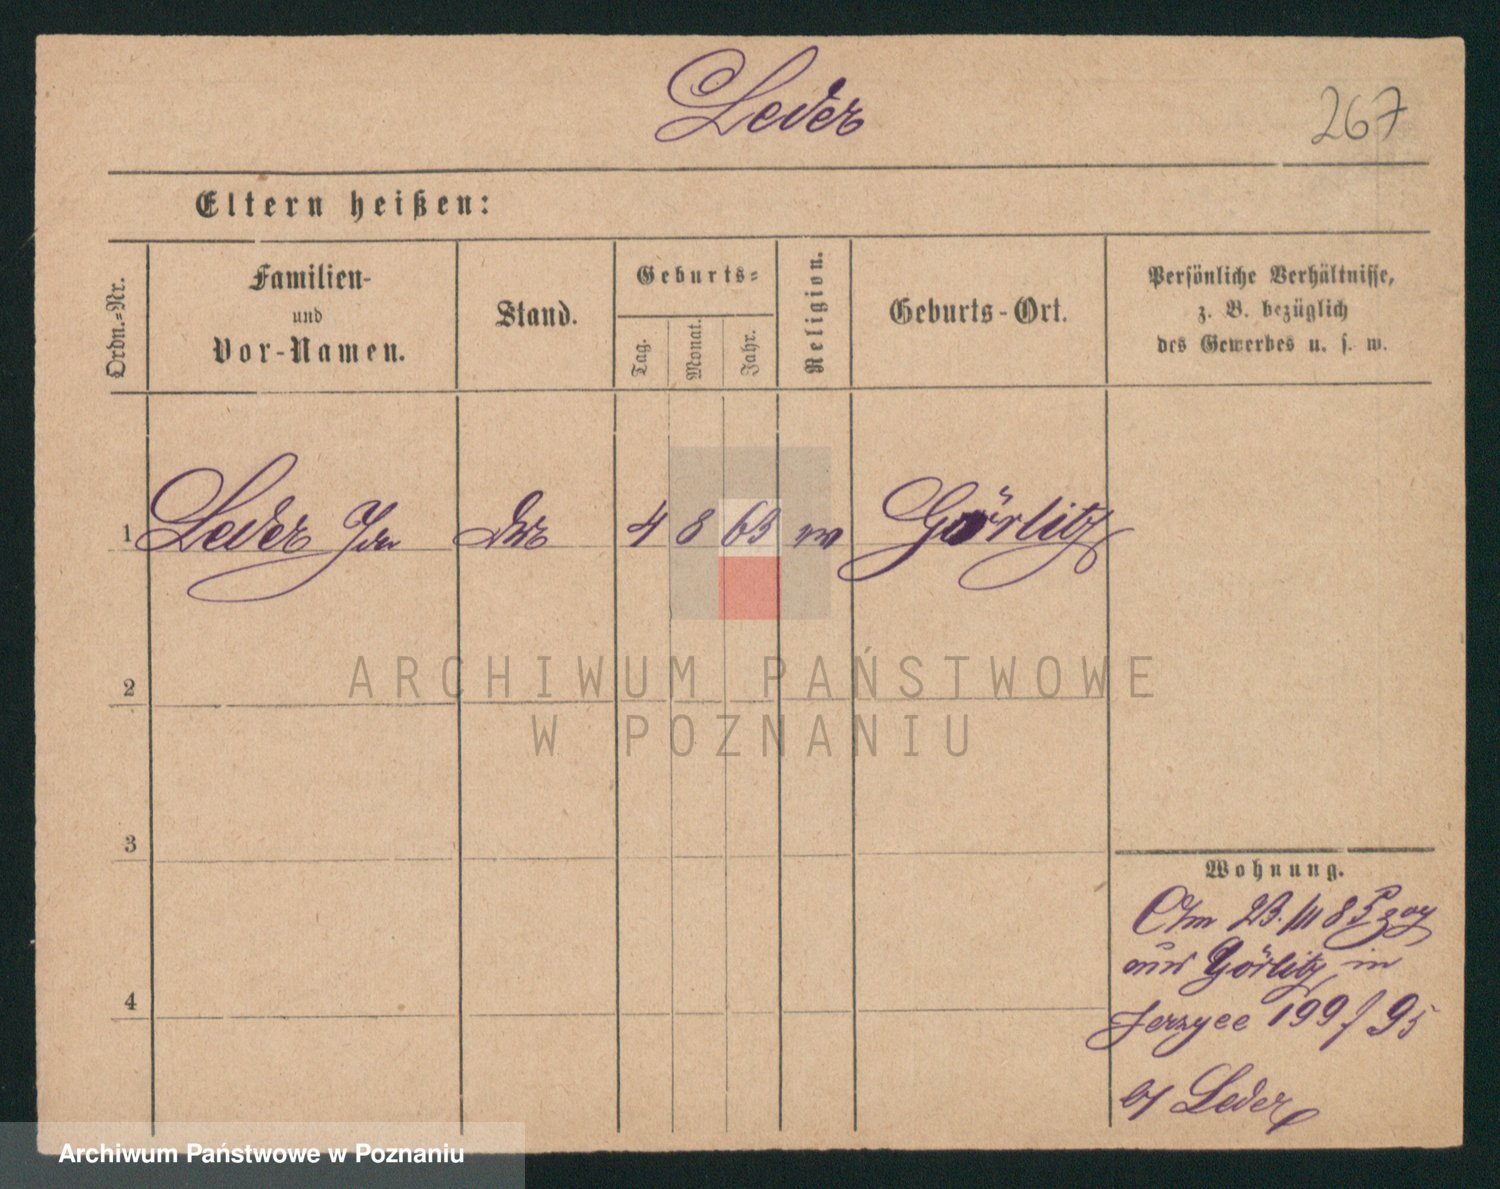 Leder
267
Eltern heißen:
Ordn.-Nr.
Familien-
und
Vor-Namen.
Stand.
Geburts-
Tag.
Monat.
Jahr.
Religion.
Geburts-Ort.
Persönliche Verhältnisse,
z. B. bezüglich
des Gewerbes u. s. w.
1 Leder 4 8 63 Görlitz
2
ARCHIWUM PAŃSTWOWE
W POZNANIU
3
4
Wohnung.
23. III 85 zog
aus Görlitz in
199/95
Leder
Archiwum Państwowe w Poznaniu